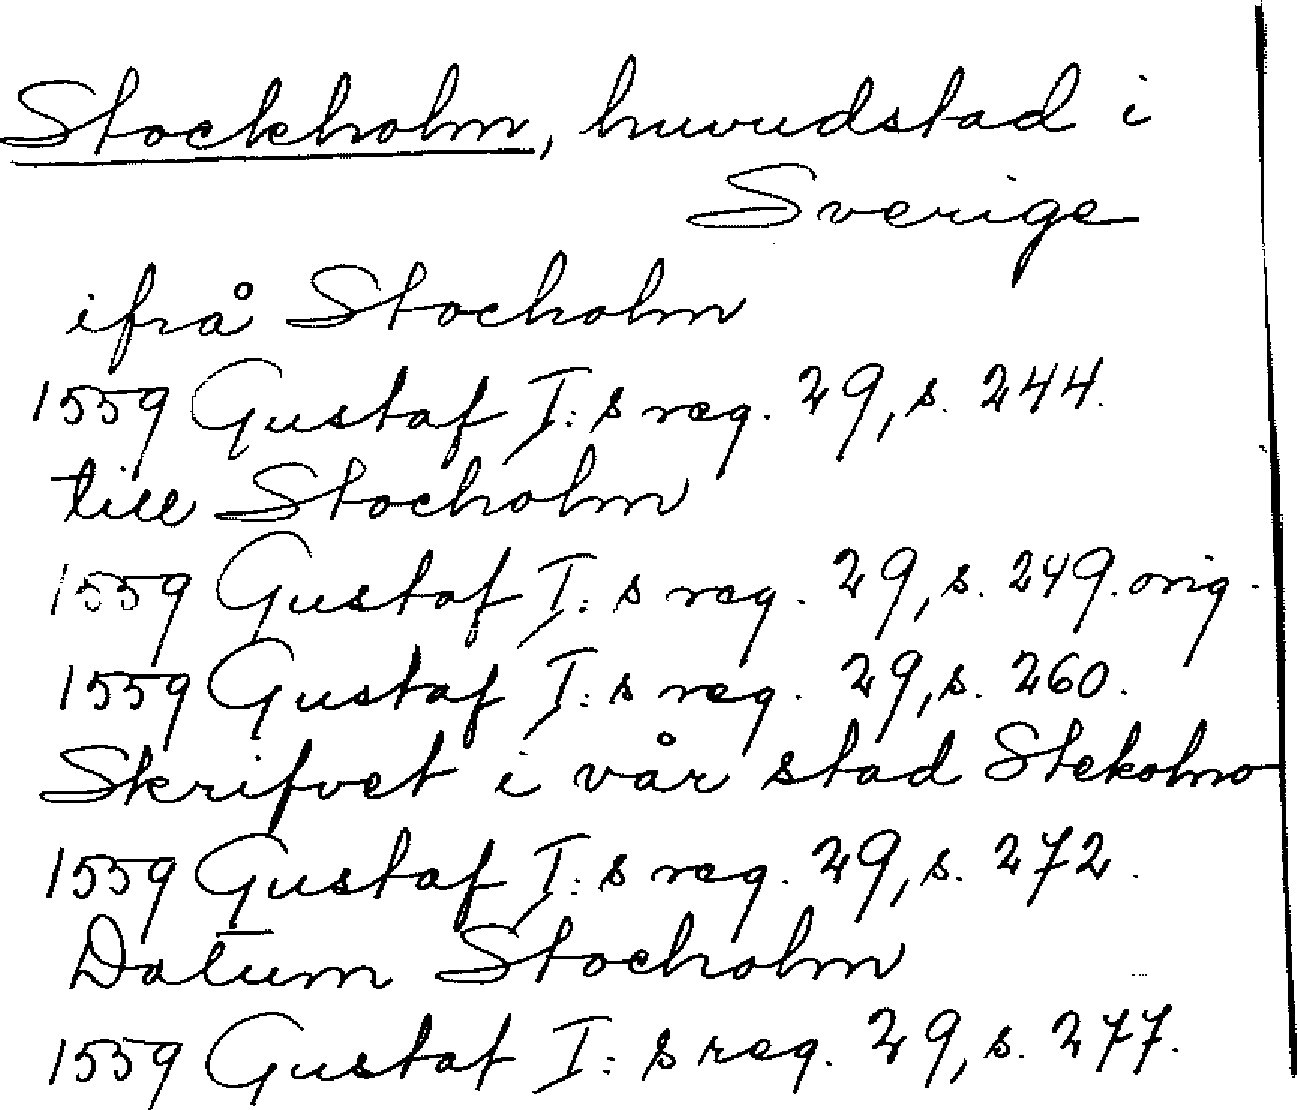 Stockholm, huvudstad i
Sverige
ifrå Stocholm
1559 Gustaf I:s reg. 29, s. 244.
till Stocholm
1559 Gustaf I:s reg. 29, s. 249. orig.
1559 Gustaf I:s reg. 29, s. 260.
Skrifvet i vår stad Stekolmo
1559 Gustaf I:s reg. 29, s. 272.
Datum Stocholm
1559 Gustaf I:s reg. 29, s. 277.